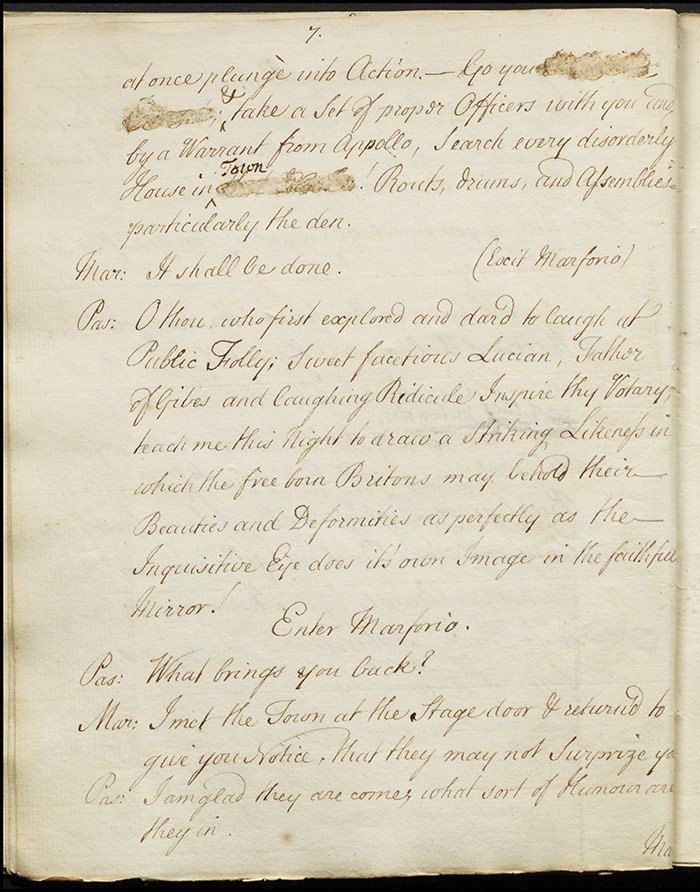 7.
at once plunge into Action. — Go you
& take a Set of proper Officers with you and,
by a Warrant from Appollo, Search every disorderly
House in Town ! Routs, drums, and Assemblies
particularly the den.
Mar: It shall be done. (Exit Marforio)
Pas: O thou, who first explored and dar'd to laugh at
Public Folly; Sweet facetious Lucian, Father
of Gibes and laughing Ridicule Inspire thy Votary,
teach me this Night to draw a Striking Likeness in
which the free born Britons may behold their
Beauties and Deformities as perfectly as the
Inquisitive Eye does it's own Image in the faithful
Mirror!
Enter Marforio.
Pas: What brings you back?
Mar: I met the Town at the Stage door & return'd to
give you Notice, that they may not Surprize yo
Pas: I am glad they are come, what sort of Humour are
they in.
Ma